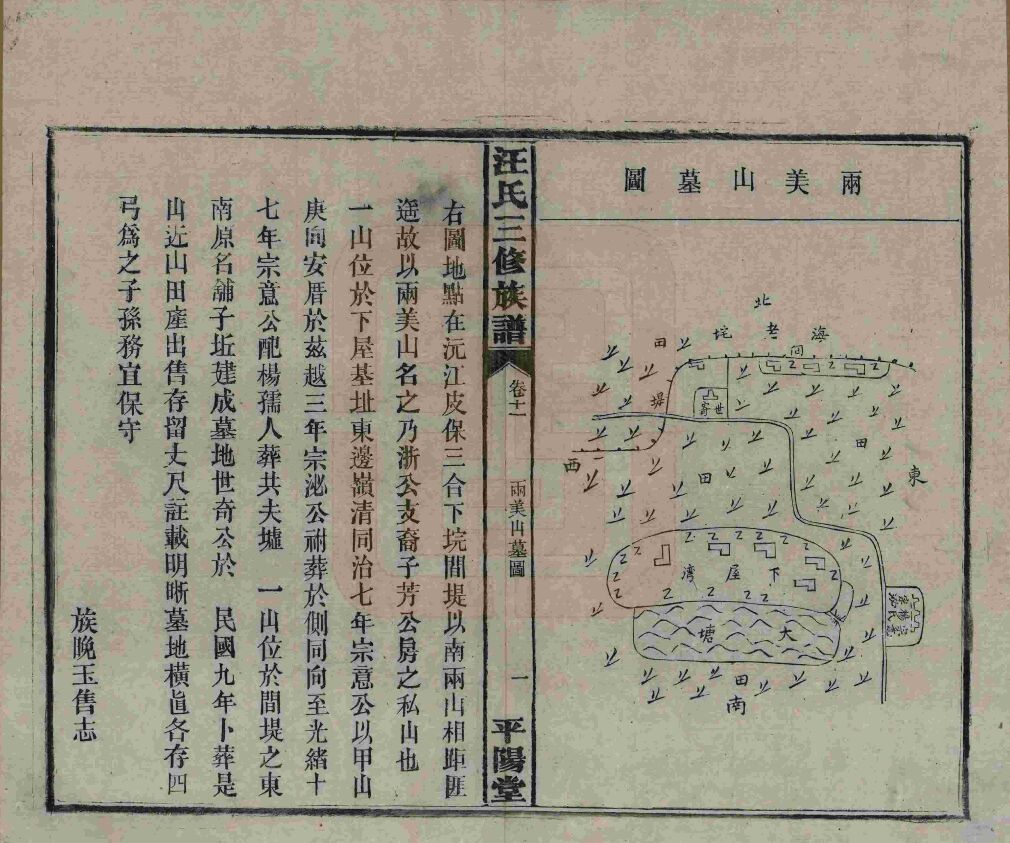 兩美山墓圖
北
海老垞
田
間
堤
世奇
田
東
西
田
下屋灣
大塘
楊氏
田
南
汪氏三修族譜
卷十一
兩美山墓圖
一
平陽堂
右圖地點在沅江皮保三合下垸間堤以南兩山相距匪
遥故以兩美山名之乃浙公支裔子芳公房之私山也
一山位於下屋基址東邊嶺清同治七年宗意公以甲山
庚向安厝於茲越三年宗泌公祔葬於側同向至光緒十
七年宗意公配楊孺人葬共夫墟 一山位於間堤之東
南原名舖子坵建成墓地世奇公於 民國九年卜葬是
山近山田產出售存留丈尺註載明晰墓地橫直各存四
弓爲之子孫務宜保守
族晚玉售志